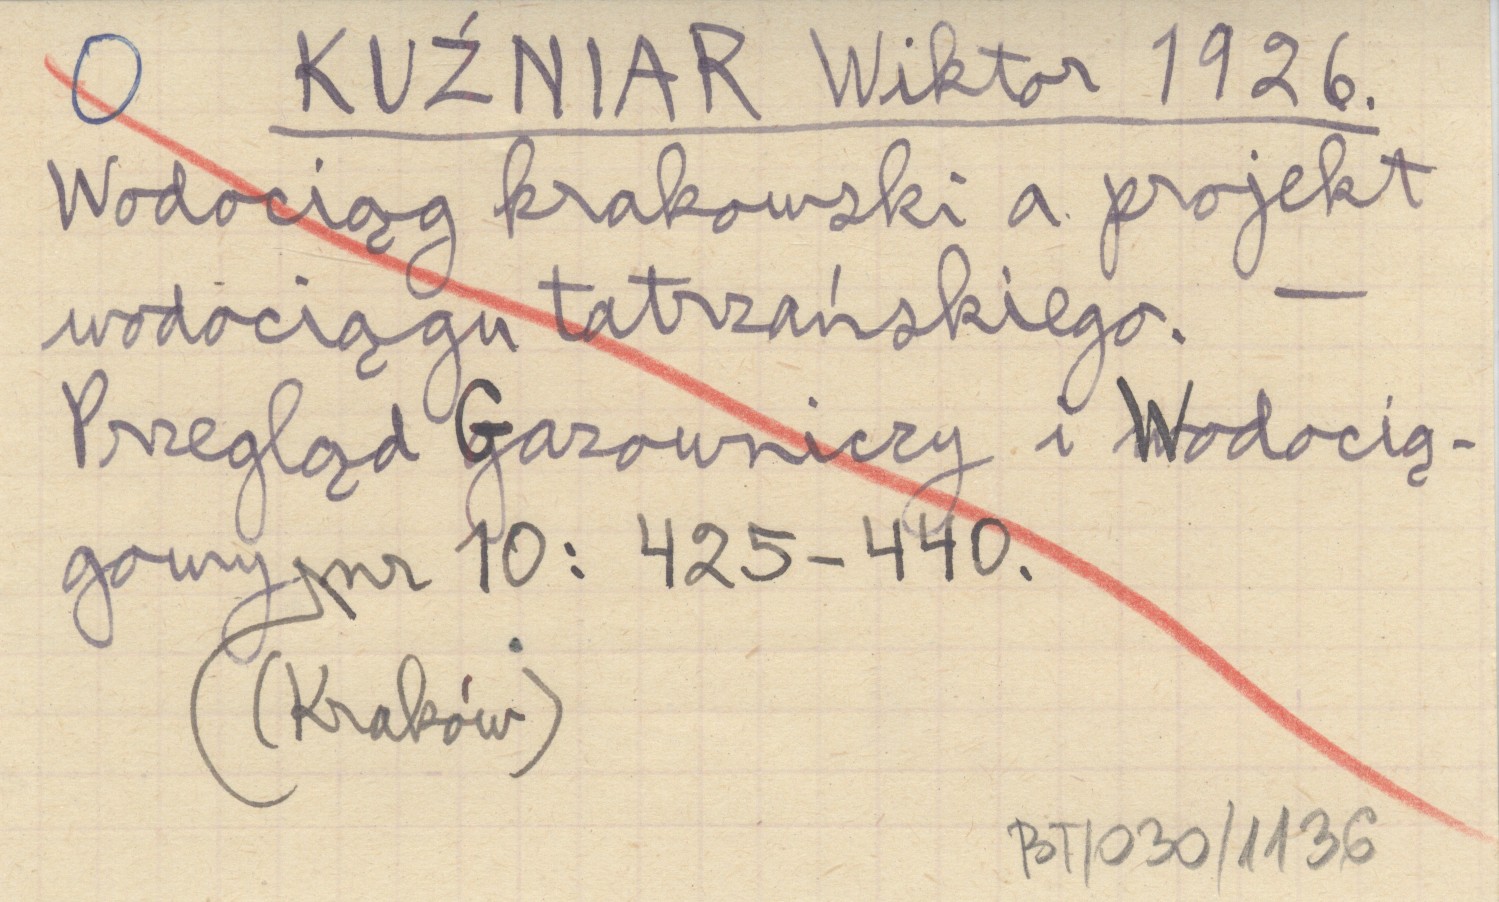 O KUŹNIAR Wiktor 1926.
Wodociąg krakowski a projekt
wodociągu tatrzańskiego. —
Przegląd Gazowniczy i Wodocią-
gowy nr 10: 425-440.
(Kraków)
BT/030/1136